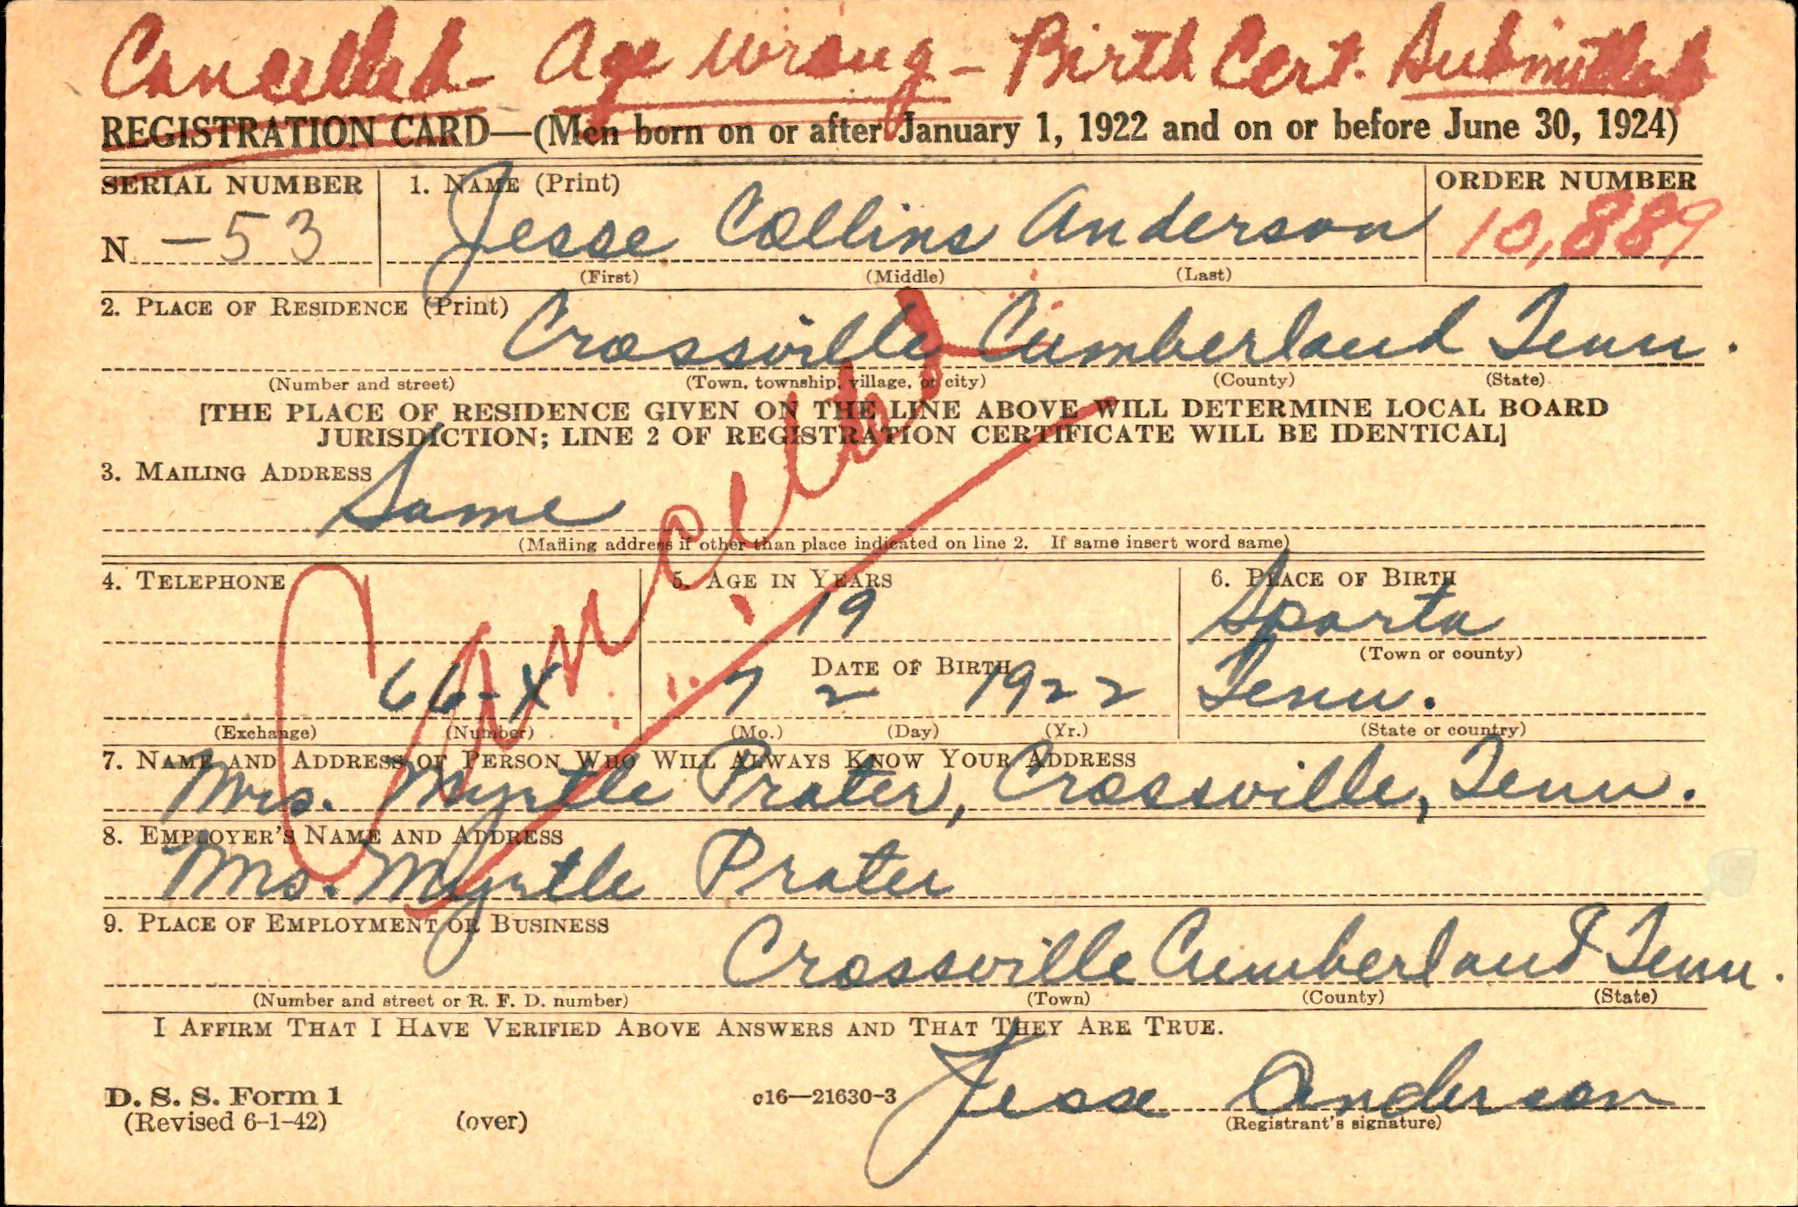 Cancelled - Age Wrong - Birth Cert. Submitted
REGISTRATION CARD—(Men born on or after January 1, 1922 and on or before June 30, 1924)
SERIAL NUMBER 1. NAME (Print) ORDER NUMBER
N -53 Jesse Collins Anderson 10,889
(First) (Middle) (Last)
2. PLACE OF RESIDENCE (Print)
Crossville Cumberland Tenn.
(Number and street) (Town, township, village, or city) (County) (State)
[THE PLACE OF RESIDENCE GIVEN ON THE LINE ABOVE WILL DETERMINE LOCAL BOARD
JURISDICTION; LINE 2 OF REGISTRATION CERTIFICATE WILL BE IDENTICAL]
Cancelled
3. MAILING ADDRESS
Same
(Mailing address if other than place indicated on line 2. If same insert word same)
4. TELEPHONE 5. AGE IN YEARS 6. PLACE OF BIRTH
19 Sparta
DATE OF BIRTH (Town or county)
66-X 7 2 1922 Tenn.
(Exchange) (Number) (Mo.) (Day) (Yr.) (State or country)
7. NAME AND ADDRESS OF PERSON WHO WILL ALWAYS KNOW YOUR ADDRESS
Mrs. Myrtle Prater, Crossville, Tenn.
8. EMPLOYER'S NAME AND ADDRESS
Mrs. Myrtle Prater
9. PLACE OF EMPLOYMENT OR BUSINESS
Crossville Cumberland Tenn.
(Number and street or R. F. D. number) (Town) (County) (State)
I AFFIRM THAT I HAVE VERIFIED ABOVE ANSWERS AND THAT THEY ARE TRUE.
D. S. S. Form 1 c16—21630-3 Jesse Anderson
(Revised 6-1-42) (over) (Registrant's signature)